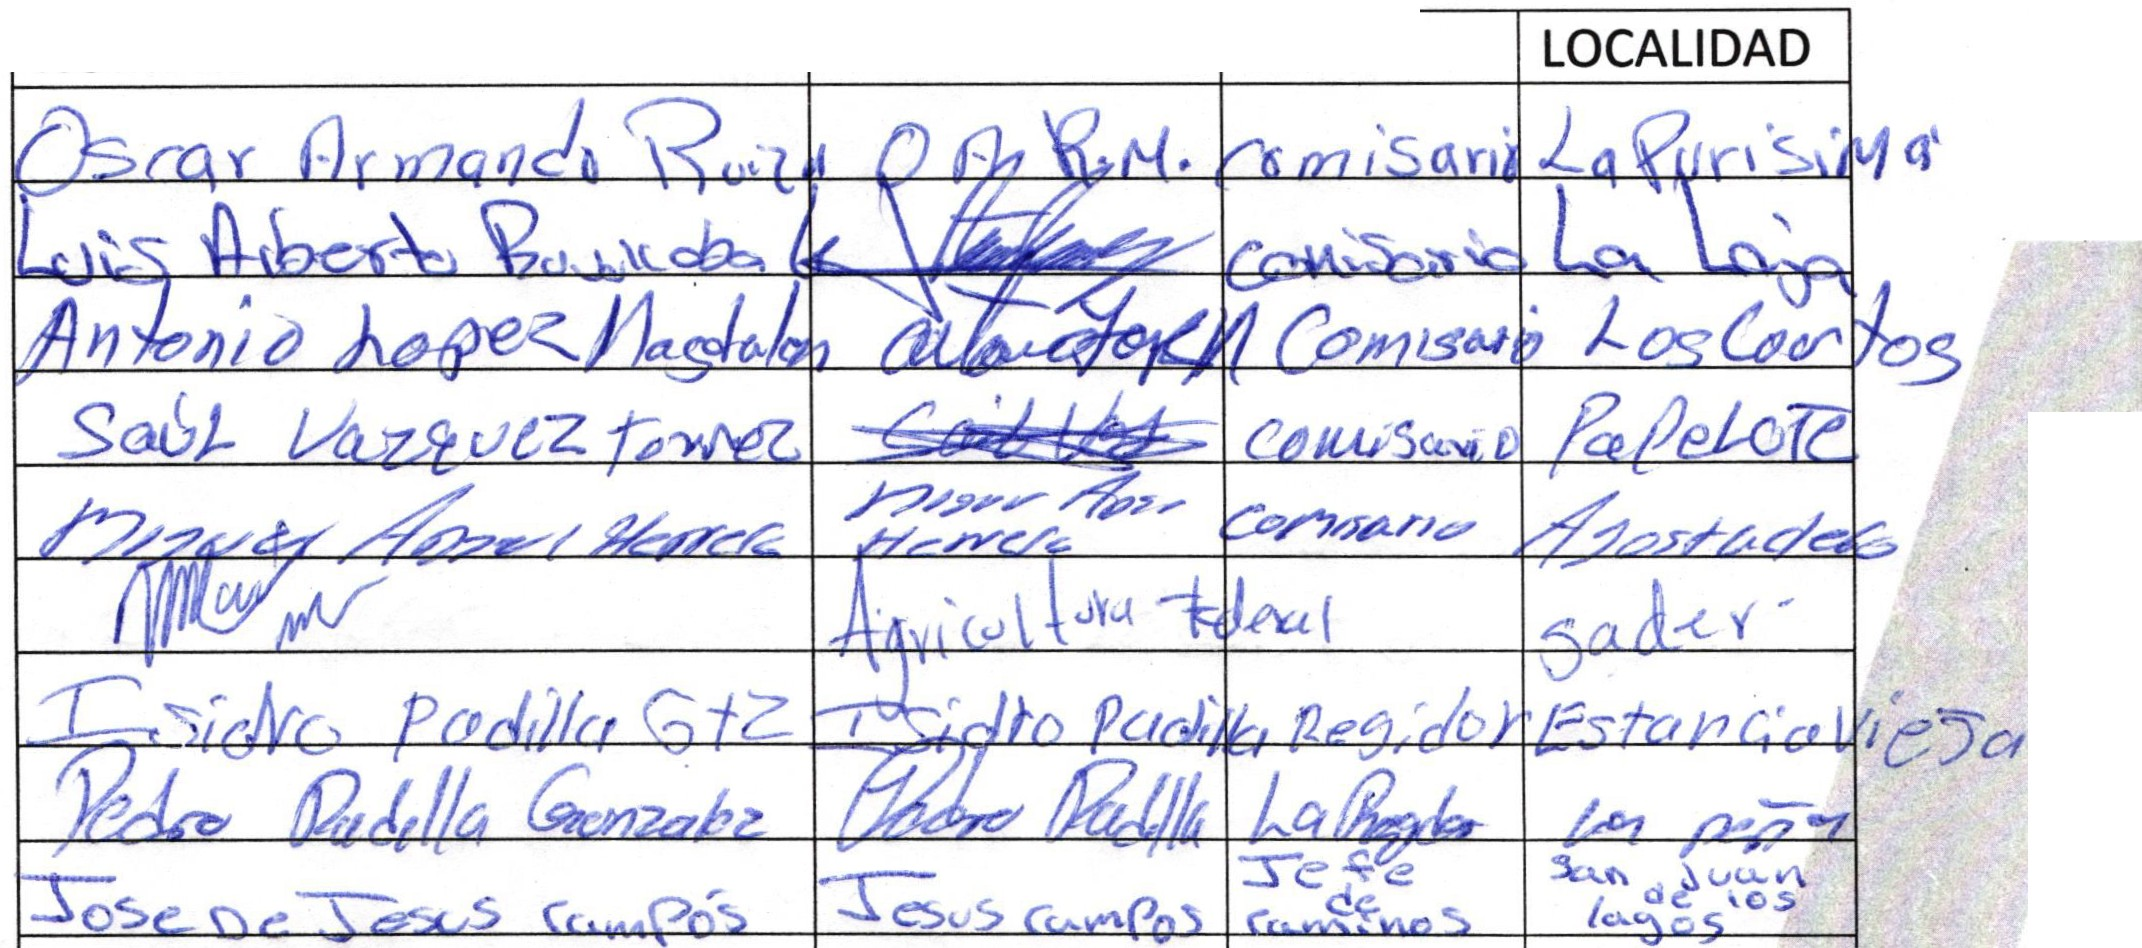 LOCALIDAD
Oscar Armando Ruiz O A R.M. comisario La Purisima
Luis Alberto comisario La Laja
Antonio Lopez Magdalen Comisario Los Coartos
Saúl Vazquez Torrez comisario PaPeLOTE
Miguel Angel Herrera Miguel Angel Herrera comisario Agostadero
Agricultura Federal sader
Isidro Padilla Gtz Isidro Padilla Regidor Estancia Vieja
Pedro Padilla Gonzalez Pedro Padilla La
Jose De Jesus campos Jesus campos Jefe de caminos San Juan de los lagos